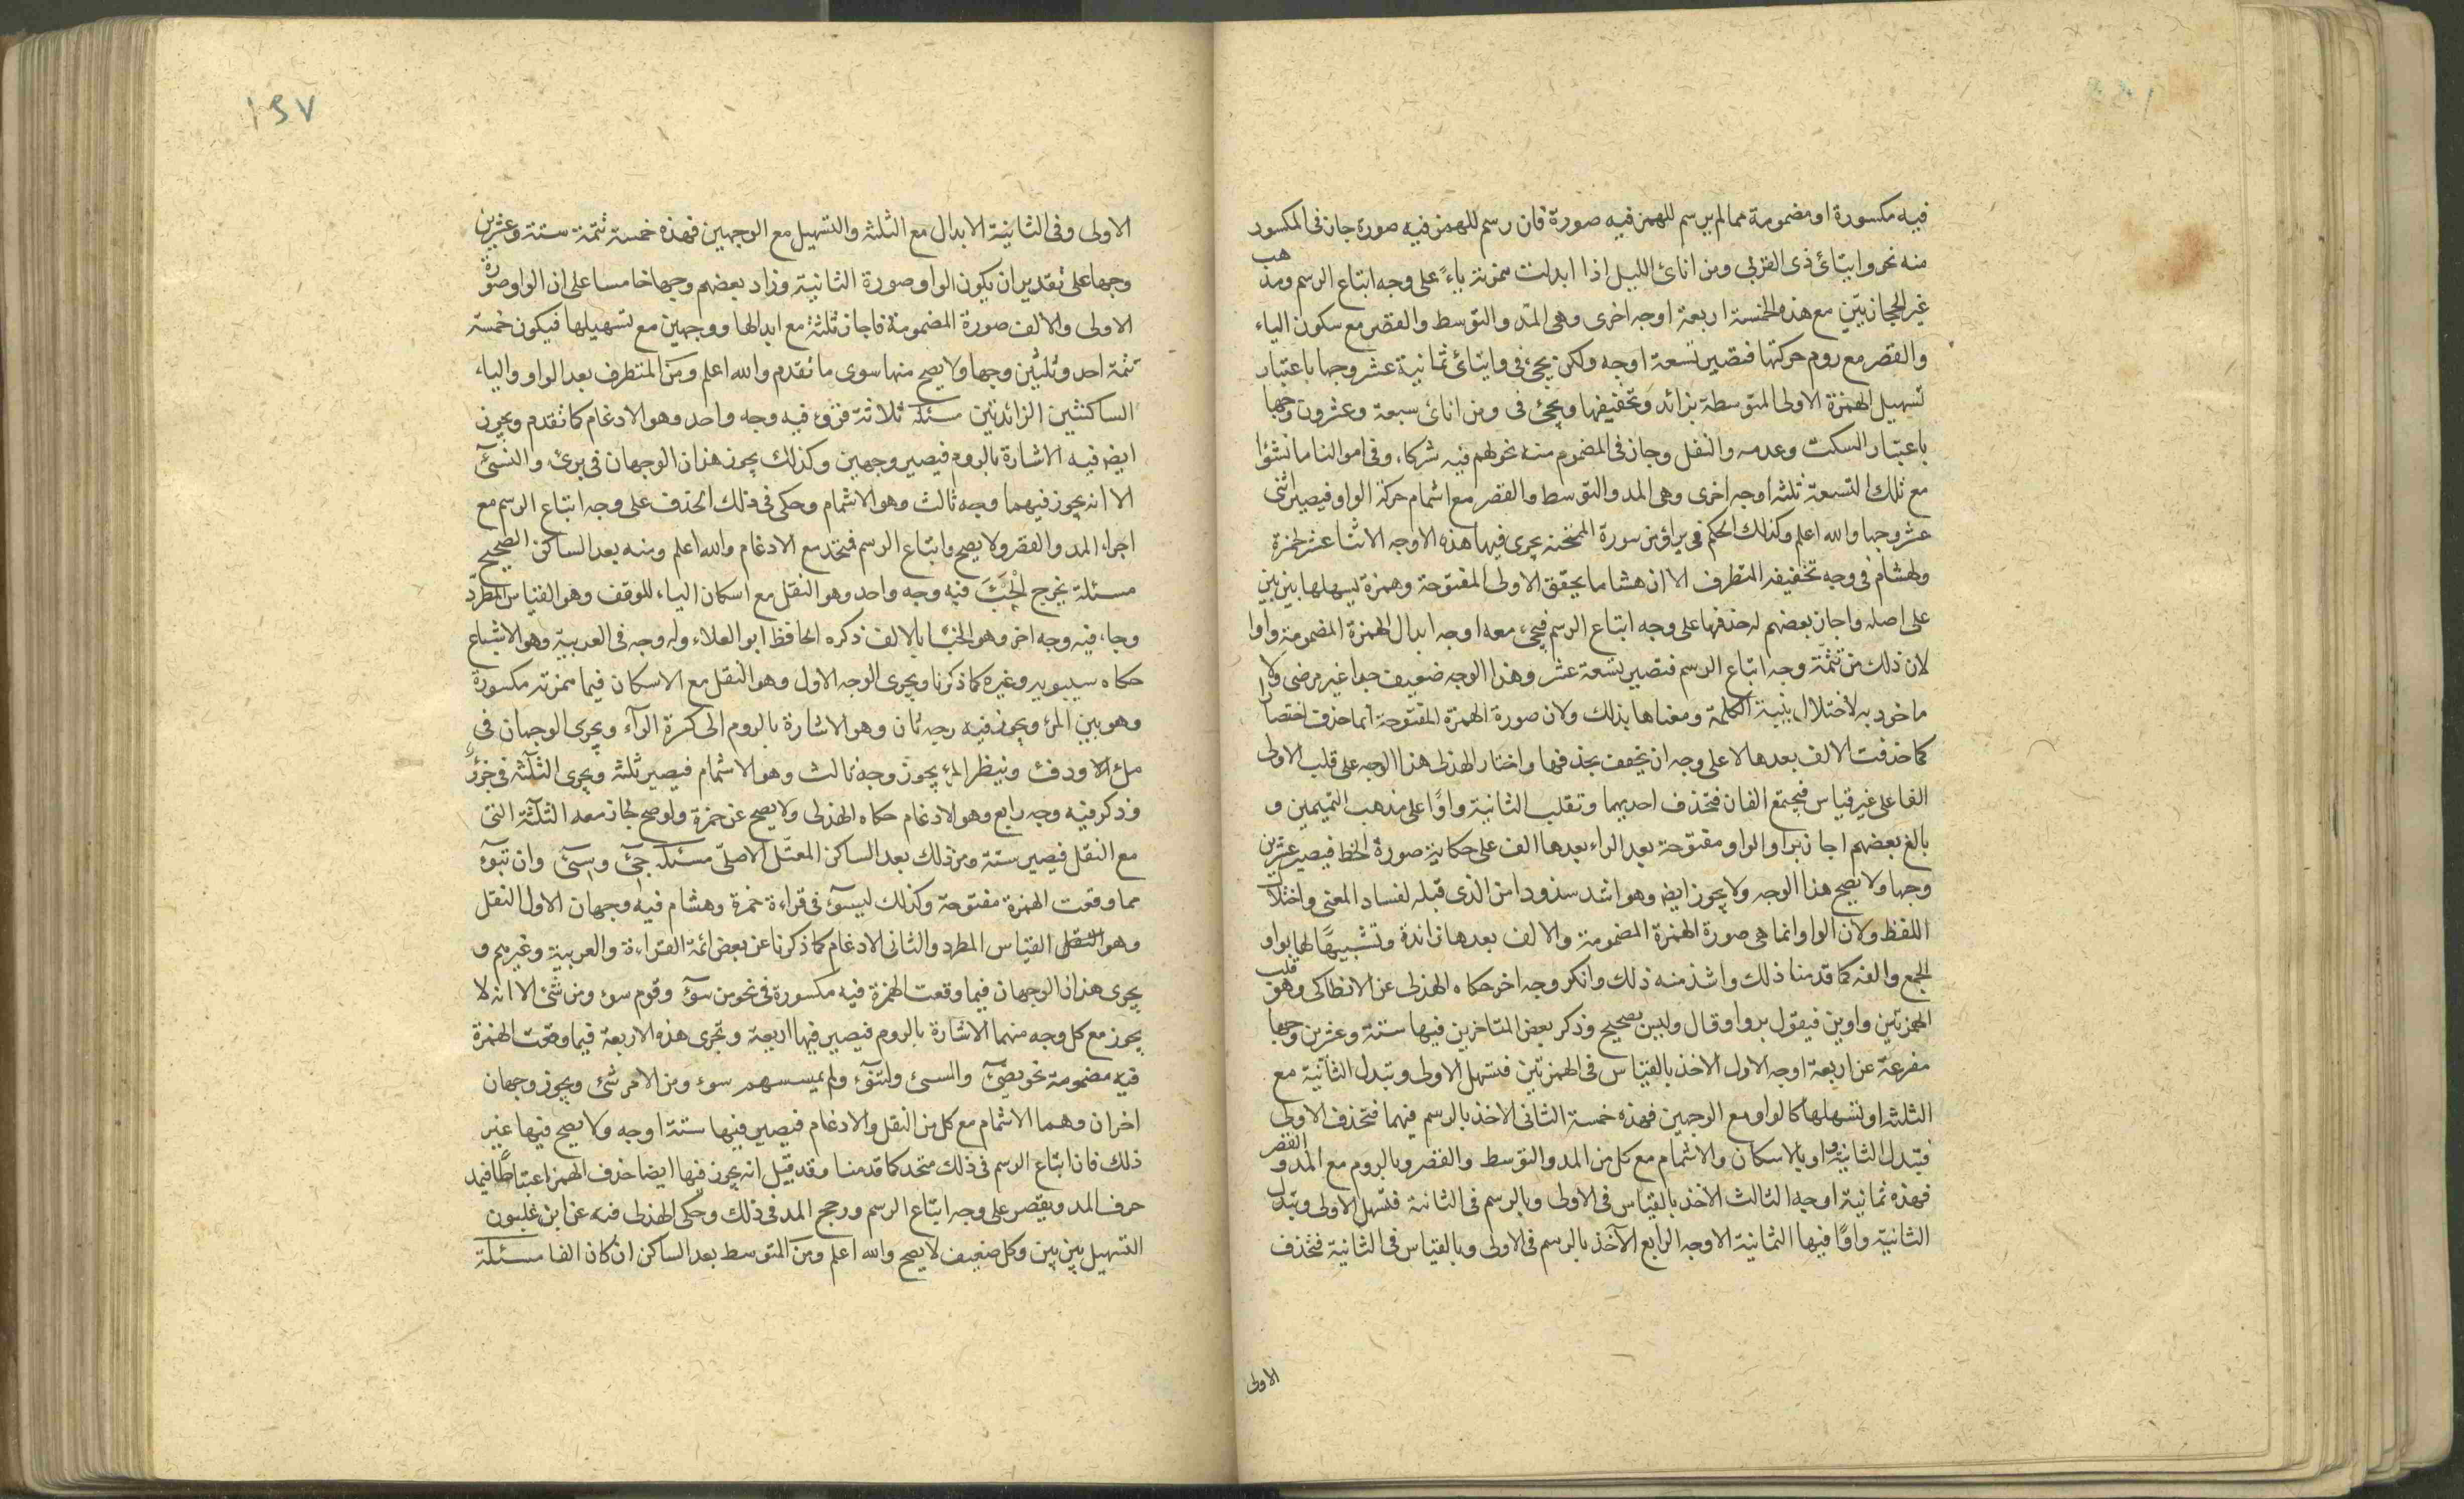 فيه مكسورة او مضمومة مما لم يرسم للهمز فيه صورة فان رسم للهمز فيه صورة جاز فى المكسور
منه نحو وايتائ ذى القربى ومن انائ الليل اذا ابدلت همزته ياءً على وجه اتباع الرسم ومذهب
غير الحجازيين مع هذه الخمسة اربعة اوجه اخرى وهى المد والتوسط والقصر مع سكون الياء
والقصر مع روم حركتها فتصير تسعة اوجه ولكن يجئ فى وايتائ ثمانية عشر وجها باعتبار
تسهيل الهمزة الاولى المتوسطة بزائد وتخفيفها ويجئ فى ومن انائ سبعة وعشرون وجها
باعتبار السكت وعدمه والنقل وجاز فى المضموم منه نحو لهم فيه شركاء وفى اموالنا ما نشؤا
مع تلك التسعة ثلثه اوجه اخرى وهى المد والتوسط والقصر مع اشمام حركة الواو فيصير اثنى
عشر وجها والله اعلم وكذلك الحكم فى براؤ من سورة الممتحنة يجرى فيها هذه الاوجه الاثنا عشر لحمزة
ولهشام فى وجه تخفيفه المتطرف الا ان هشاما يحقق الاولى المفتوحة وحمزة يسهلها بين بين
على اصله واجاز بعضهم له حذفها على وجه اتباع الرسم فيجئ معه اوجه ابدال الهمزة المضمومة واوا
لان ذلك من تتمّة وجه اتباع الرسم فتصير تسعة عشر وهذا الوجه ضعيف جدا غير مرضى ولا
ماخوذ به لاختلال بنية الكلمة ومعناها بذلك ولان صورة الهمزة المفتوحة انما حذفت اختصارا
كما حذفت الالف بعدها لا على وجه ان يخفف بحذفها واختار الهذلى هذا الوجه على قلب الاولى
الفا على غير قياس فيجتمع الفان فتحذف احديهما وتقلب الثانية واوًا على مذهب التميمين و
بالغ بعضهم اجاز براوا بواو مفتوحة بعد الراء بعدها الف على حكاية صورة الخط فيصير عشرين
وجها ولا يصح هذا الوجه ولا يجوز ايض وهو اشد سذوذا من الذى قبله لفساد المعنى واختلال
اللفظ ولان الواو انما هى صورة الهمزة المضمومة والالف بعدها زائدة وتشبيهًا لها بواو
الجمع والفه كما قدمنا ذلك واشذ منه ذلك وانكر وجه اخر حكاه الهذلى عن الانطاكى وهو قلب
الهمزتين واوين فيقول بروا وقال وليس بصحيح وذكر بعض المتاخرين فيها ستة وعشرين وجها
مفرعة عن اربعة اوجه الاول الاخذ بالقياس فى الهمزتين فتسهل الاولى وتبدل الثانية مع
الثلثه او تسهلها كالواو مع الوجهين فهذه خمسة الثانى الاخذ بالرسم فيهما فتحذف الاولى
فتبدل الثانية واو بالاسكان والاشمام مع كل من المد والتوسط والقصر وبالروم مع المد و القصر
فهذه ثمانية اوجه الثالث الاخذ بالقياس فى الاولى وبالرسم فى الثانية فتسهل الاولى وتبدل
الثانية واوًا فيها الثمانية الاوجه الرابع الآخذ بالرسم فى الاولى وبالقياس فى الثانية فتحذف
الاولى
١٩٧
الاولى وفى الثانية الابدال مع الثلثه والتسهيل مع الوجهين فهذه خمسة تتمّة ستة وعشرين
وجها على تقدير ان يكون الواو صورة الثانية وزاد بعضهم وجها خامسا على ان الواو صورة
الاولى والالف صورة المضمومة فاجاز ثلثة مع ابدالها ووجهين مع تسهيلها فيكون خمسة
تتمة احد وثلثين وجها ولا يصح منها سوى ما تقدم والله اعلم ومن المتطرف بعد الواو والياء
الساكنتين الزائدتين مسئلة ثلاثة قروء فيه وجه واحد وهو الادغام كما تقدم ويجوز
ايض فيه الاشارة بالروم فيصير وجهين وكذلك يجوز هذان الوجهان فى برئ والنسئ
الا انه يجوز فيهما وجه ثالث وهو الاشمام وحكى فى ذلك الحذف على وجه اتباع الرسم مع
اجراء المد والقصر ولا يصح واتباع الرسم متحد مع الادغام والله اعلم ومنه بعد الساكن الصحيح
مسئلة يخرج الخبَ فيه وجه واحد وهو النقل مع اسكان الباء للوقف وهو القياس المطرد
وجاء فيه وجه اخر وهو الخبا بالالف ذكره الحافظ ابو العلاء وله وجه فى العربية وهو الاشباع
حكاه سيبويه وغيره كما ذكرنا ويجرى الوجه الاول وهو النقل مع الاسكان فيما همزته مكسورة
وهو بين المرء ويجوز فيه وجه ثان وهو الاشارة بالروم الى كسرة الراء ويجرى الوجهان فى
ملء الا ودفئ وينظر المرء يجوز وجه ثالث وهو الاشمام فيصير ثلثة ويجرى الثلثه فى جزء
وذكر فيه وجه رابع وهو الادغام حكاه الهذلى ولا يصح عن حمزة ولو صح لجاز معه الثلثة التى
مع النقل فيصير ستة ومن ذلك بعد الساكن المعتلّ الاصلى مسئلة جئ وسئ وان تبوء
مما وقعت الهمزة مفتوحة وكذلك ليسوء فى قراءة حمزة وهشام فيه وجهان الاول النقل
وهو النقل القياس المطرد والثانى الادغام كما ذكرنا عن بعض ائمة القراءة والعربية وغيرهم و
يجرى هذان الوجهان فيما وقعت الهمزة فيه مكسورة فى نحو من سوء وقوم سوء ومن شئ الا انه لا
يجوز مع كل وجه منهما الاشارة بالروم فيصير فيها اربعة وتجرى هذه الاربعة فيما وقعت الهمزة
فيه مضمومة نحو يضئ والمسئ ولتنوء ولم يمسسهم سوء ومن الامر شئ ويجوز وجهان
اخران وهما الاشمام مع كل من النقل والادغام فيصير فيها ستة اوجه ولا يصح فيها غير
ذلك فان اتباع الرسم فى ذلك متحد كما قدمنا وقد قيل انه يجوز فيها ايضا حذف الهمز اعتباطًا فيمد
حرف المد ويقصر على وجه اتباع الرسم ورجح المد فى ذلك وحكى الهذلى فيه عن ابن غلبون
التسهيل بين بين وكل ضعيف لا يصح والله اعلم ومن المتوسط بعد الساكن ان كان الفا مسئلة